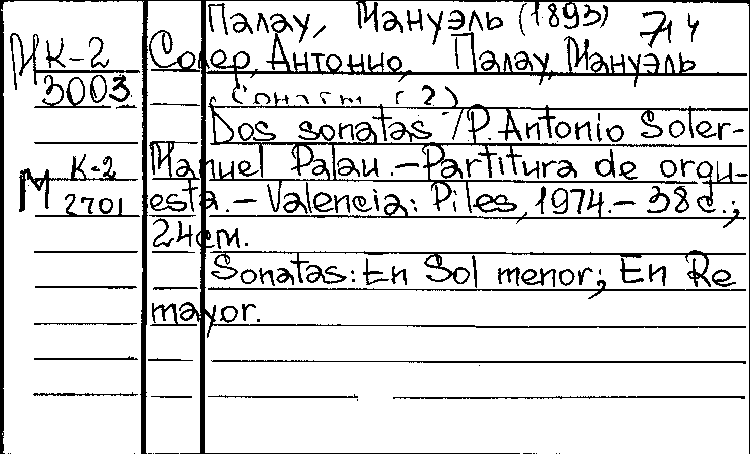 Палау, Мануэль (1893) 714
М К-2 Солер, Антонио, Палау, Мануэль
3003
. Сонаты (2)
Dos sonatas / P. Antonio Soler-
М К-2 Manuel Palau. – Partitura de orqu-
2701 esta. – Valencia: Piles, 1974. – 38 с.;
24 cm.
Sonatas: En Sol menor; En Re
mayor.